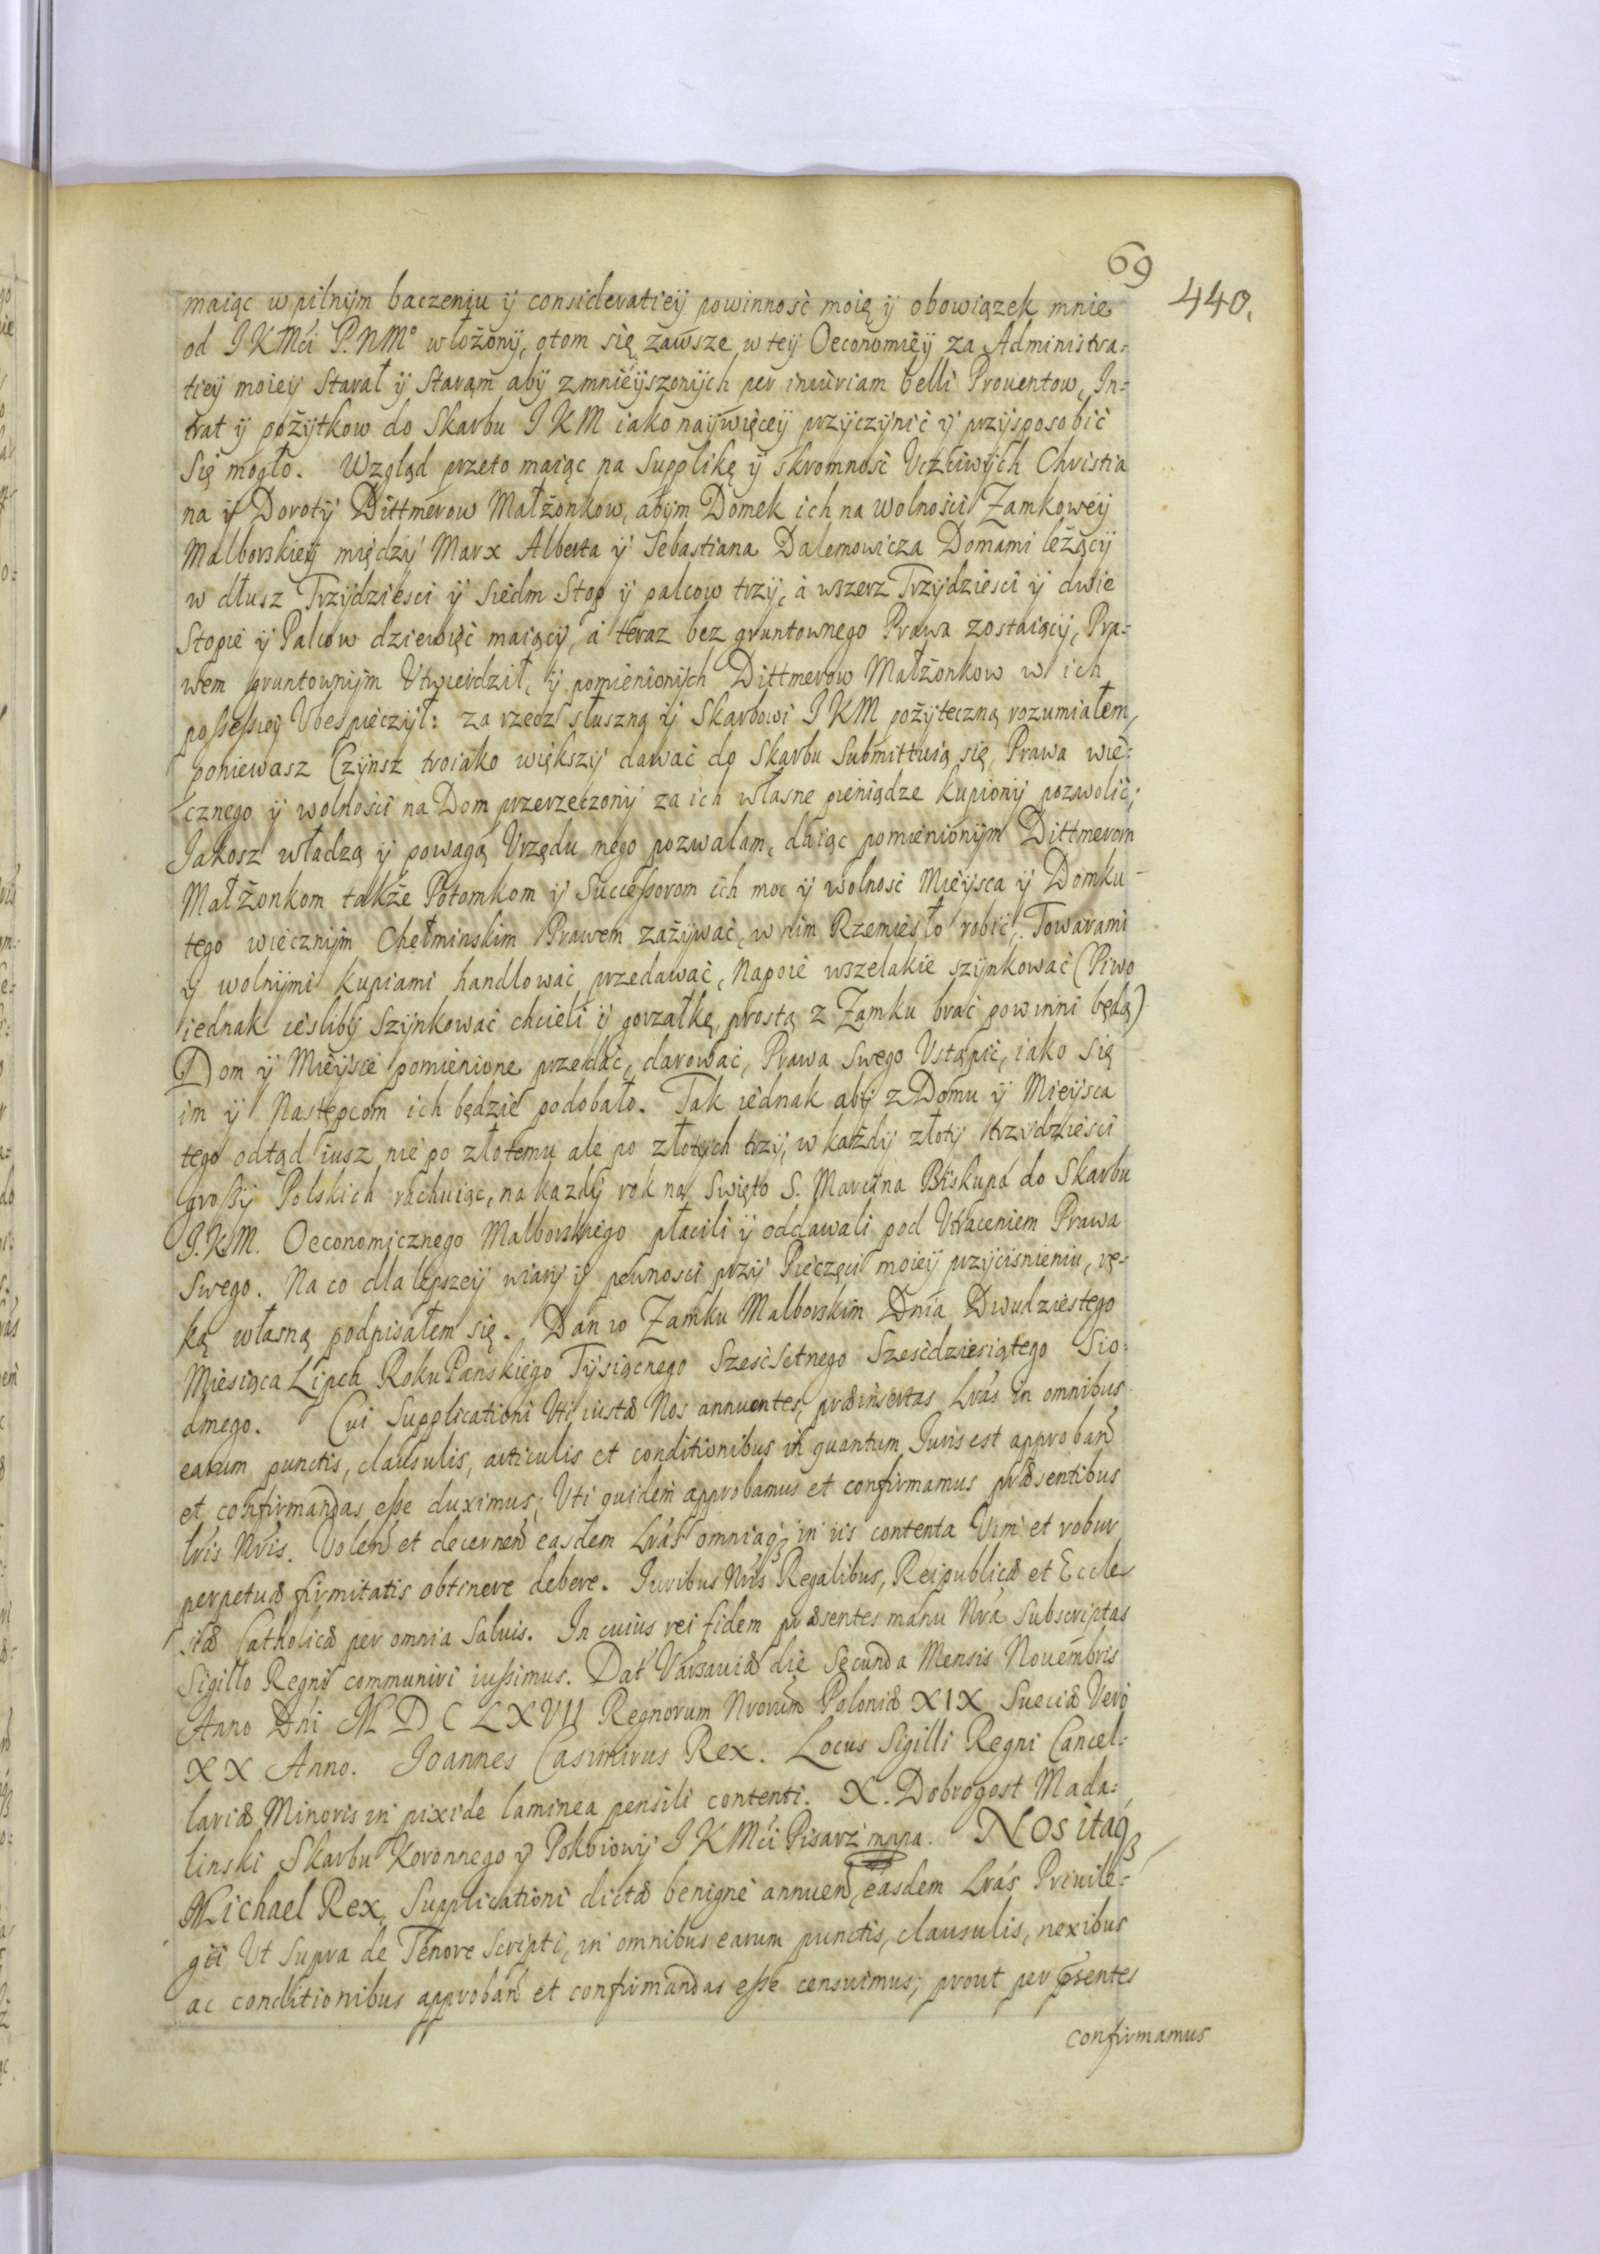 69
440.
maiąc w pilnym baczeniu ÿ consideratieÿ powinnosć moię ÿ obowiązek mnie
od J K Mći P. N Mº włożonÿ, otom się zawsze w teÿ Oeconomieÿ za Administra-
tieÿ moieÿ starał ÿ staram abÿ zmnieÿszonÿch per iniuriam belli Prouentow, In-
trat ÿ pożÿtkow do Skarbu J K M iako naÿwięceÿ przÿczÿnić ÿ przÿsposobić
się mogło. Wzgląd przeto maiąc na Supplikę ÿ skromność Vczciwÿch Christia
na ÿ Dorotÿ Dittmerow Małżonkow, abÿm Domek ich na wolności Zamkoweÿ
Malborskieÿ międzÿ Marx Alberta ÿ Sebastiana Dalemowicza Domami leżącÿ
w dłusz Trzÿdzieści ÿ siedm Stop ÿ palcow trzÿ, a wszerz Trzÿdziesci ÿ dwie
Stopie ÿ Palcow dziewięć maiącÿ, a teraz bez gruntownego Prawa zostaiącÿ, Pra-
wem gruntownÿm Vtwierdził, ÿ pomienionÿch Dittmerow Małżonkow w ich
possessieÿ Vbespieczÿł: za rzecz słuszną ÿ Skarbowi J K M pożÿteczną rozumiałem,
poniewasz Czÿnsz troiako większÿ dawać do Skarbu Submittuią się, Prawa wie-
cznego ÿ wolności na Dom przerzeczonÿ za ich własne pieniądze kupionÿ pozwolić;
Jakosz władzą ÿ powagą Vrzędu mego pozwalam, daiąc pomienionÿm Dittmerom
Małżonkom także Potomkom ÿ Successorom ich moc ÿ wolność Mieÿsca ÿ Domku
tego wiecznÿm Chełminskim Prawem zażÿwać, w nim Rzemiesło robić, Towarami
ÿ wolnÿmi kupiami handlować, przedawać, Napoie wszelakie szÿnkować (Piwo
iednak ieslibÿ Szÿnkować chcieli ÿ gorzałkę prostą z Zamku brać powinni będą)
Dom ÿ Mieÿsce pomienione przedać, darować, Prawa swego Vstąpić, iako się
im ÿ Następcom ich będzie podobało. Tak iednak abÿ z Domu ÿ Mieÿsca
tego odtąd iusz nie po złotemu ale po złotÿch trzÿ, w każdÿ złotÿ trzÿdzieści
grossÿ Polskich rachuiąc, na kazdÿ rok na Swięto S. Marcina Biskupa do Skarbu
J. K. M. Oeconomicznego Malborskiego płacili ÿ oddawali pod Vtraceniem Prawa
Swego. Na co dla lepszeÿ wiarÿ ÿ pewnosci przÿ Pieczęci moieÿ przÿcisnieniu, rę-
ką własną podpisałem się. Dan w Zamku Malborskim Dnia Dwudziestego
Miesiąca Lipca Roku Panskiego Tÿsiącnego Szesćsetnego Szescdziesiątego Sio-
dmego. Cui Supplicationi Vti iustæ Nos annuentes, præinsertas Lrás in omnibus
earum punctis, clausulis, articulis et conditionibus in quantum Juris est approban̄
et confirmandas esse duximus; Vti quidem approbamus et confirmamus præsentibus
lrís Nrís. Volen̄ et decernen̄ easdem Lrás omniaqꝫ in iis contenta Vim et robur
perpetuæ firmitatis obtinere debere. Juribus Nrís Regalibus, Reipublicæ et Eccle
siæ Catholicæ per omnia saluis. In cuius rei fidem præsentes manu Nrá Subscriptas
Sigillo Regni communiri iussimus. Dat̄ Varsauiæ die Secunda Mensis Nouembris
Anno Dn̄i M D C L X V I I Regnorum Nrorum Poloniæ XIX Sueciæ Vero
X X Anno. Joannes Casimirus Rex. Locus Sigilli Regni Cancel-
lariæ Minoris in pixide laminea pensili contenti. X. Dobrogost Mada-
linski Skarbu Koronnego ÿ Pokoiowÿ J K Mći Pisarz mppa. Nos itaqꝫ
Michael Rex, Supplicationi dictæ benigne annuen̄, easdem Lrás Priuile-
gii Vt supra de Tenore scripti, in omnibus earum punctis, clausulis, nexibus
ac conditionibus approban̄ et confirmandas esse censuimus; prout per pr̄sentes
confirmamus